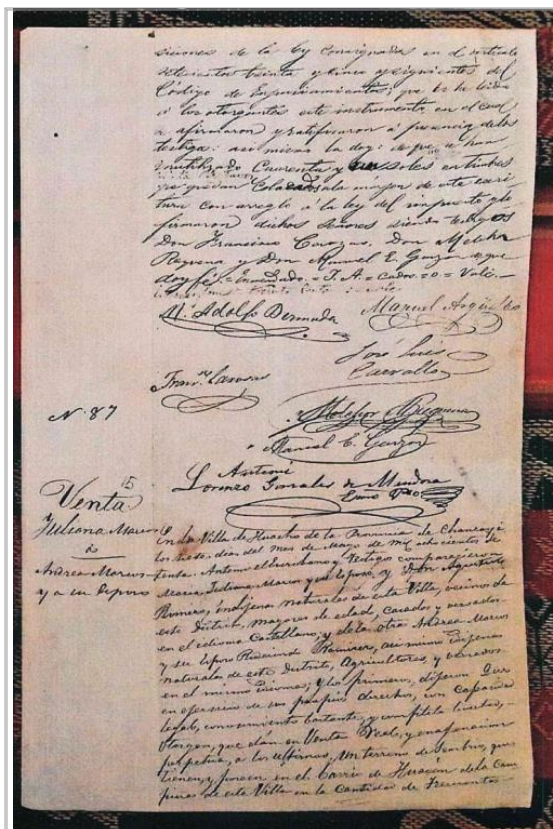 siciones de la ley consignadas en el artículo
setecientos treinta y cinco y siguientes del
Código de Enjuiciamientos; que les he leído
á los otorgantes este instrumento en el cual
se afirmaron y ratificaron á presencia de los
testigos: asi mismo la doy: de que se han
inutilizado Cuarenta y soles en timbres
que quedan Colocados al margen de esta escri-
tura con arreglo á la ley del impuesto y lo
firmaron dichos Señores siendo testigos
Don Francisco Carozas. Don Melchor
Requena y Don Manuel E. Garzon de que
doy fé. = Enmendado. = T. A = cados. = o = Vale. —
M. Adolfo Bermuda
Manuel Argüelles
José Luis
Carvallo
Fran.co
N. 87
Melchor Requena
Manuel E. Garzon
Antemi
Lorenzo Gonzales de Mendoza
15
Venta
Juliana Marcos
á
Andrea Marcos
y a su Esposo
En la Villa de Huacho de la Provincia de Chancay á
los siete dias del mes de Mayo de mil ochocientos
Antemi el Escribano y testigos comparecieron
Maria Juliana Marcos y su esposo, y Don Agustin
Romero, indíjenas naturales de esta Villa, vecinos de
este Distrito, mayores de edad, casados y versados
en el idioma Castellano; y de la otra Andrea Marcos
y su Esposo Rudecindo Ramirez, asi mismo Indíjenas
naturales de este Distrito, Agricultores, y versados
en el mismo Idioma; y los primeros, dijeron Que
en ejercicio de sus propios derechos, con Capacidad
legal, conocimiento bastante, y completa livertad, —
Otorgan, que dan en Venta Real, y enajenacion
perpetua, a los últimos. Un terreno de sembrio, que
tienen y poseen en el Barrio de de la Cam
piña de esta Villa en la Cantidad de